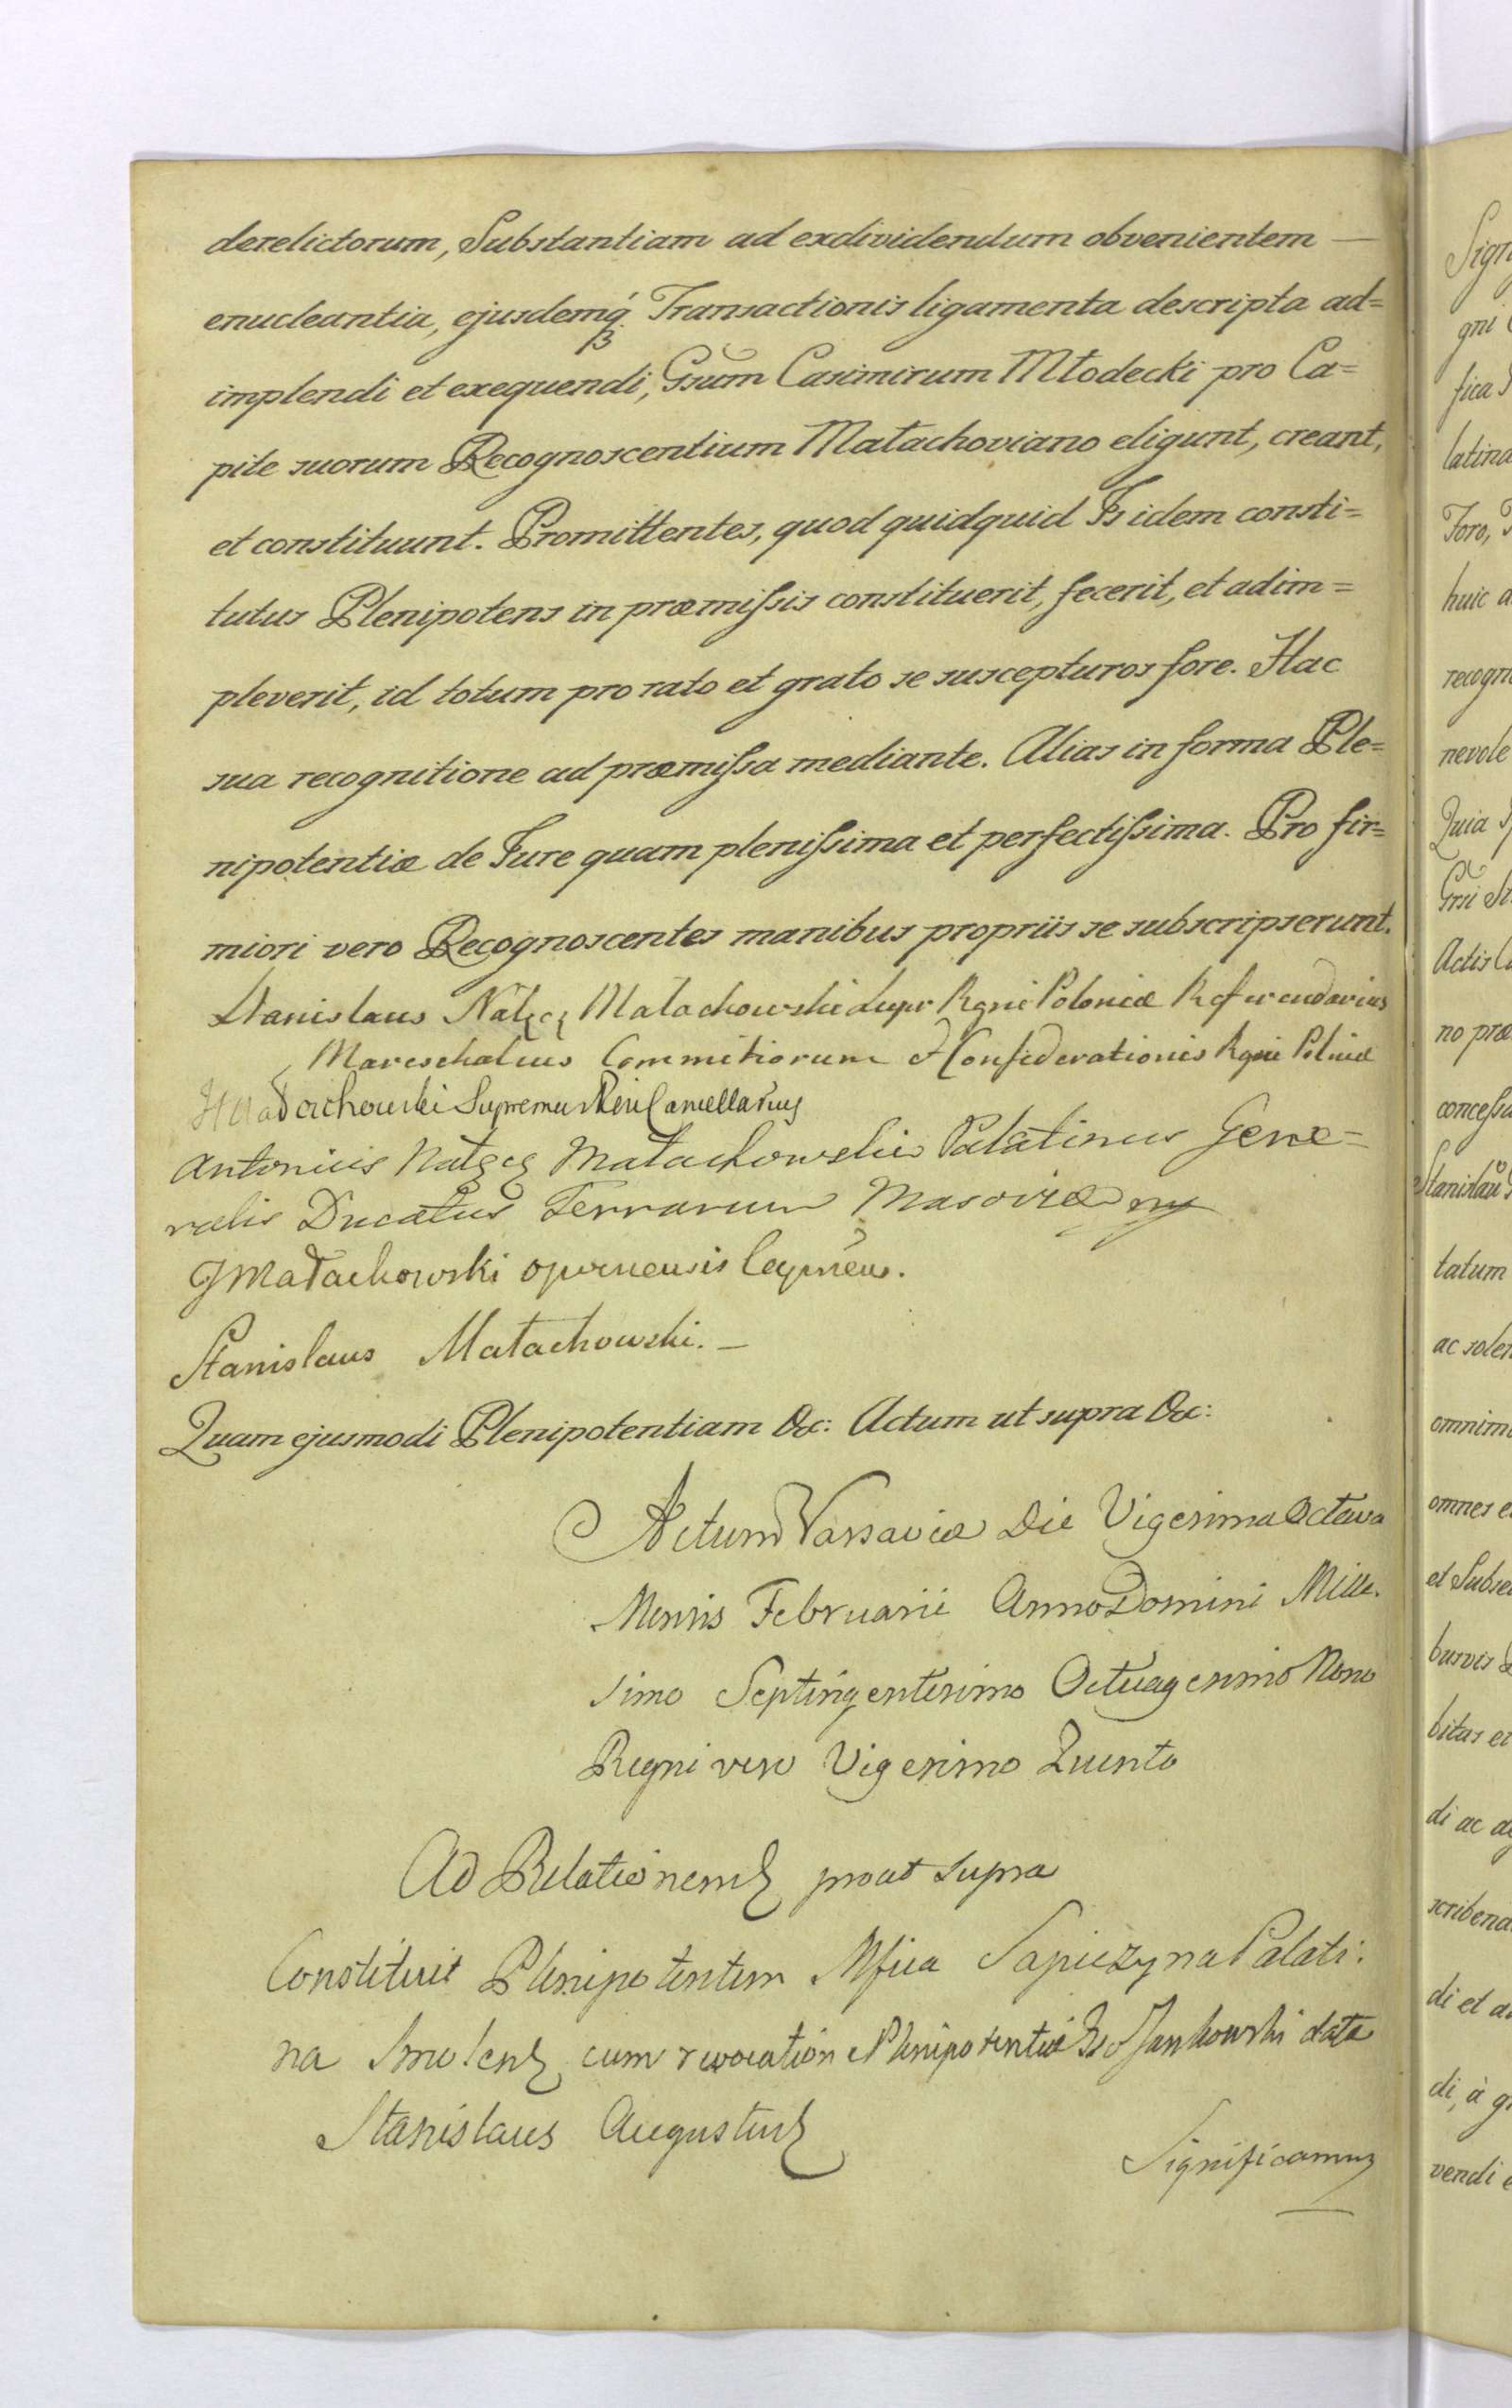 derelictorum, Substantiam ad exdividendum obvenientem —
enucleantia, ejusdemq́ Transactionis ligamenta descripta ad=
implendi et exequendi, Gsum Casimirum Młodecki pro Ca=
pite suorum Recognoscentium Małachoviano eligunt, creant,
et constituunt. Promittentes, quod quidquid Is idem consti=
tutus Plenipotens in præmiſsis constituerit, fecerit, et adim=
pleverit, id totum pro rato et grato se suscepturos fore. Hac
sua recognitione ad præmiſsa mediante. Alias in forma Ple=
nipotentiæ de Jure quam pleniſsima et perfectiſsima. Pro fir=
miori vero Recognoscentes manibus propriis se subscripserunt.
Stanislaus Nałęcz Małachowski Supr Rgni Poloniæ Referendarius
Mareschalcus Commitiorum & Confederationis Rgni Polniæ
Małachowski Supremus Regni Cancellarius
Antonius Nałęcz Małachowski Palatinus Gene=
ralis Ducatus Terrarum Masoviæ mp
J Małachowski opocnensis Capneus.
Stanislaus Małachowski. —
Quam ejusmodi Plenipotentiam &c: Actum ut supra &c:
Actum Varsaviæ Die Vigesima Octava
Mensis Februarii Anno Domini Mille.
simo Septingentesimo Octuagesimo Nono
Regni vero Vigesimo Quinto
Ad Relationem prout supra
Constituit Plenipotentem Mfica Sapiezyna Palati:
na Smolens cum revocatione Plenipotentiæ Gso Jankowski data
Stanislaus Augustus
Significamus
Sign
gni
fica
latina
Foro,
huic a
recogn
nevole
Quia
Grsi St
Actis
no præ
conceſsa
Stanislaū
tatum
ac solen
omnimo
omnes e
et Subse
busvis
bitas et
di ac a
scribend
di et a
di, à g
vendi e